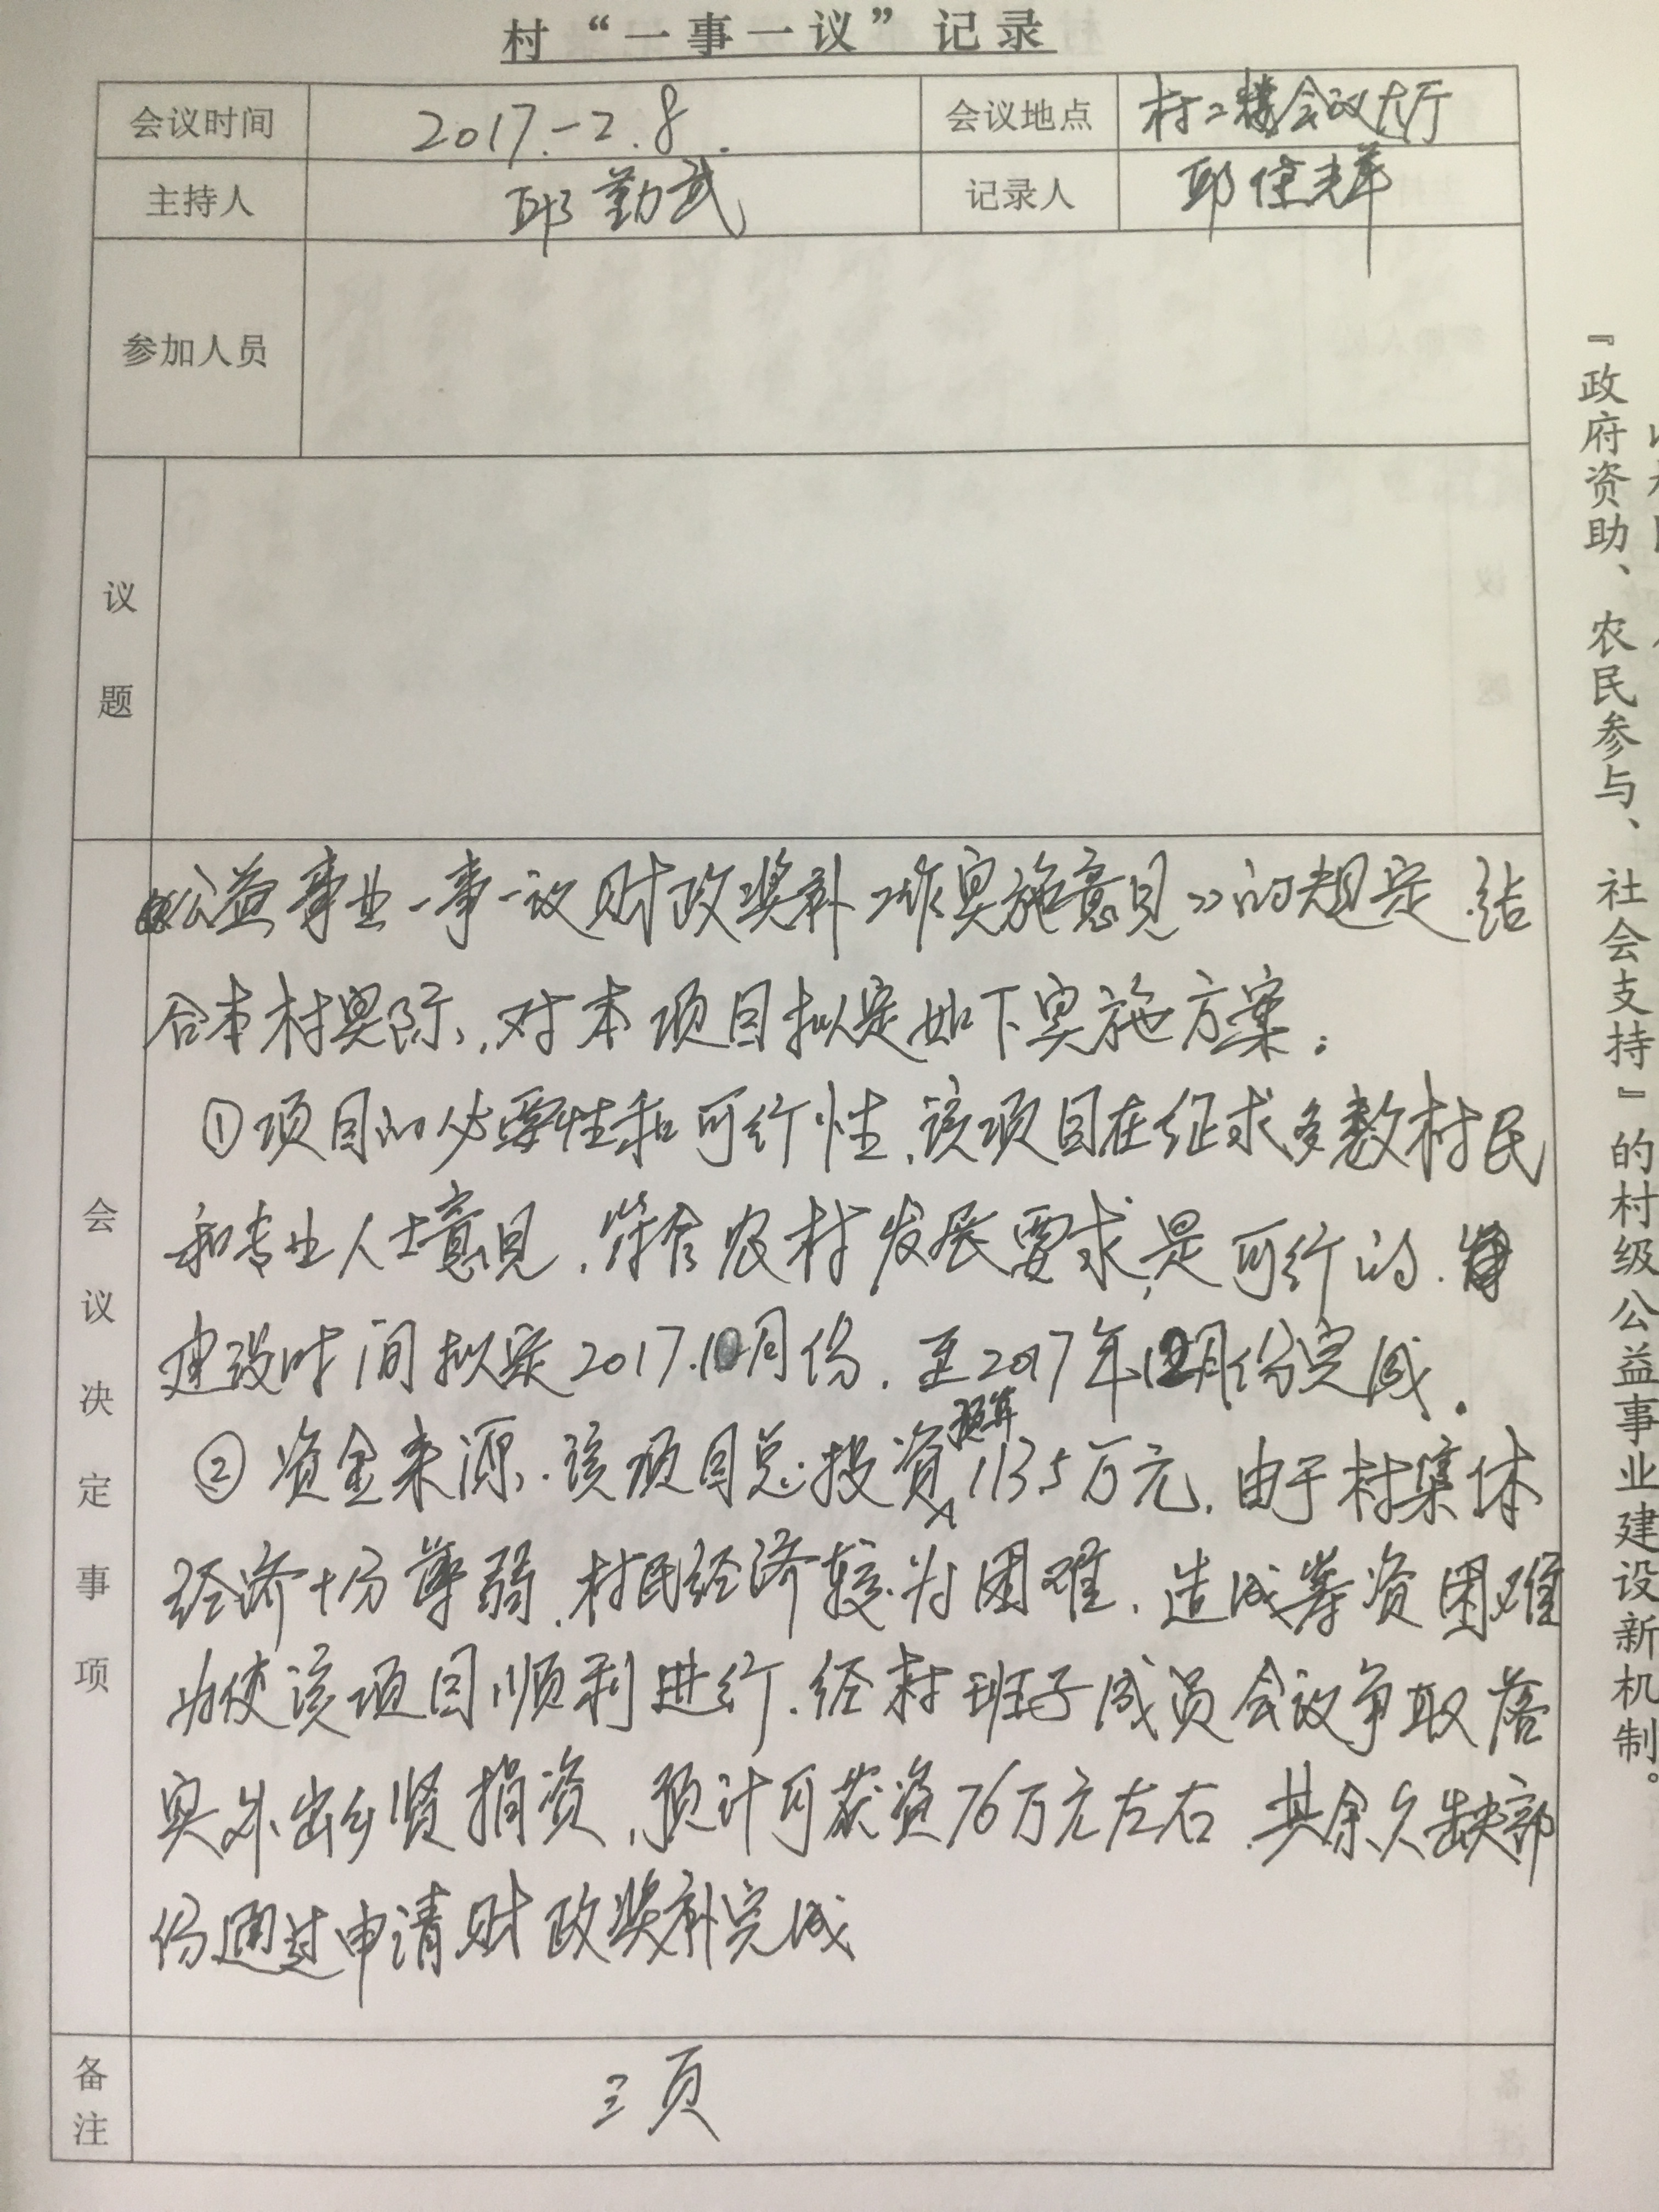 村“一事一议”记录
会议时间 2017.-2.8. 会议地点 村二楼会议大厅
主持人 邱勤武 记录人 邱佳辉
参加人员
议题
会议决定事项
公益事业一事一议财政奖补工作实施意见》的规定.结
合本村实际,对本项目拟定如下实施方案:
①项目的必要性和可行性.该项目在征求多数村民
和专业人士意见,符合农村发展要求,是可行的.
建设时间拟定2017.10月份.至2017年12月份完成.
②资金来源.该项目总投资预算113.5万元.由于村集体
经济十份薄弱.村民经济较为困难.造成筹资困难
为使该项目顺利进行.经村班子成员会议争取落
实外出乡贤捐资,预计可获资76万元左右.其余欠缺部
份通过申请财政奖补完成
备注 三页
『政府资助、农民参与、社会支持』的村级公益事业建设新机制。